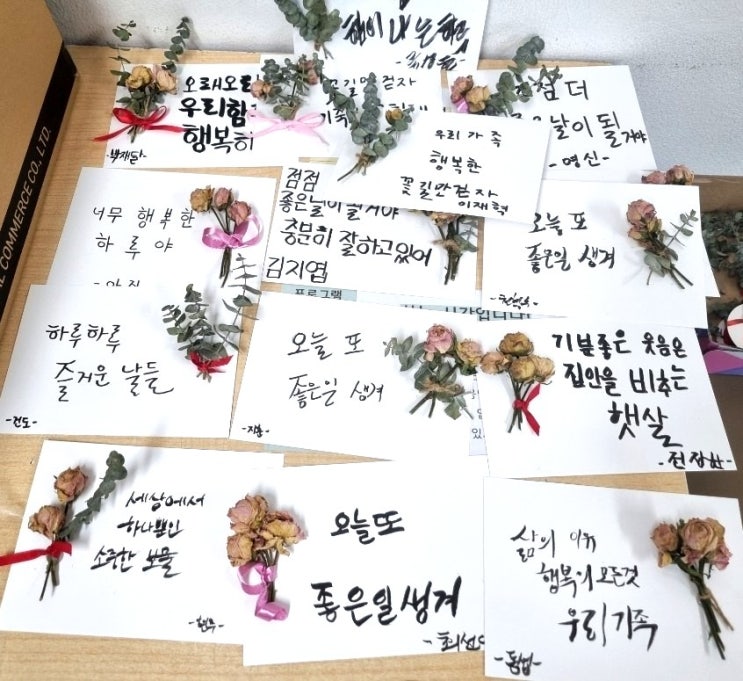 COMMERCE CO., LTD.
오래오래
우리함
행복히
꽃길만 걷자
우리 가족
행복한
꽃길만 걷자
이재혁
점 더
날이 될거야
-영신-
너무 행복한
하루야
점점
좋은날이 될거야
충분히 잘하고있어
김지엽
오늘 또
좋은일 생겨
프로그램
하루하루
즐거운 날들
-건도-
오늘 또
좋은일 생겨
-지훈-
기분좋은 웃음은
집안을 비추는
햇살
세상에서
하나뿐인
소중한 보물
-현우-
오늘또
좋은일생겨
삶의 이유
행복의 모든것
우리가족